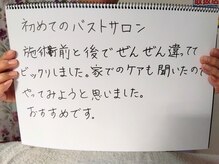 初めてのバストサロン
施術前と後でぜんぜん違ってて
ビックリしました。家でのケアも聞いたので
やってみようと思いました。
おすすめです。